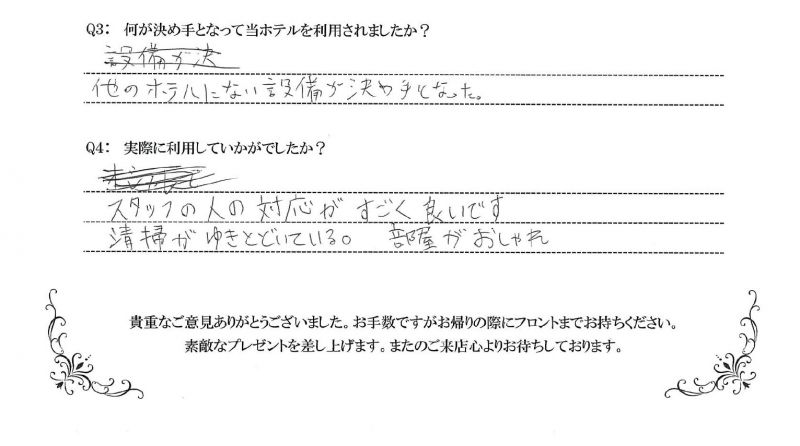 Q3: 何が決め手となって当ホテルを利用されましたか?
設備が決
他のホテルにない設備が決め手となった。
Q4: 実際に利用していかがでしたか?
スタッフの人の対応がすごく良いです
清掃がゆきとどいている。 部屋がおしゃれ
貴重なご意見ありがとうございました。お手数ですがお帰りの際にフロントまでお持ちください。
素敵なプレゼントを差し上げます。またのご来店心よりお待ちしております。